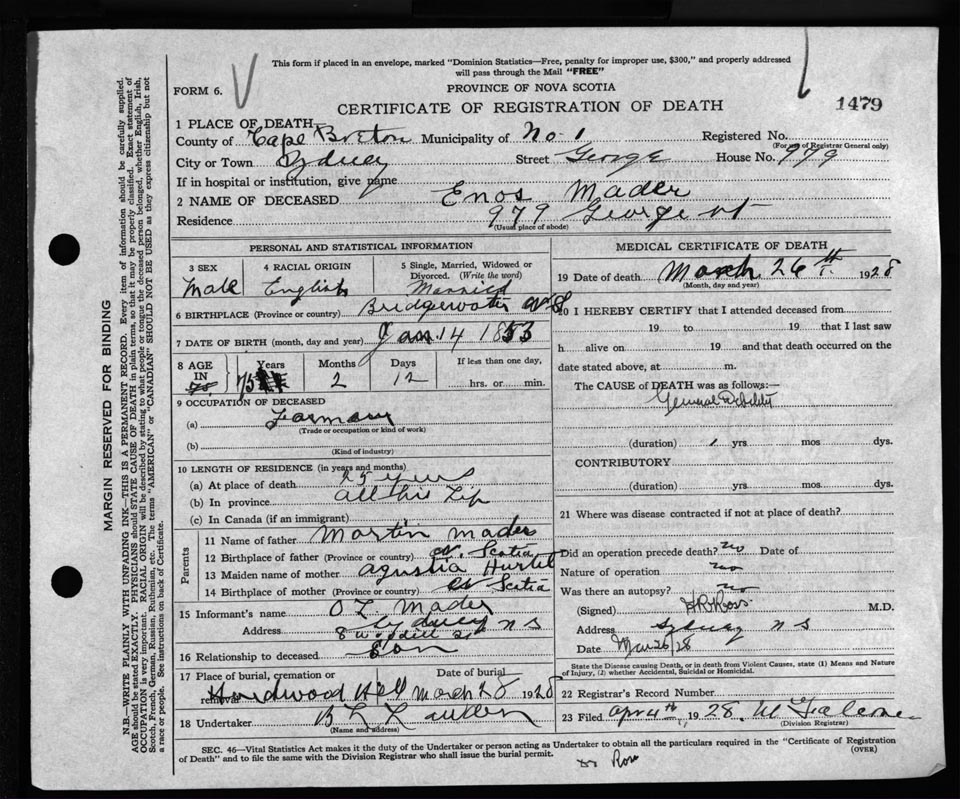 This form if placed in an envelope, marked "Dominion Statistics—Free, penalty for improper use, $300," and properly addressed
will pass through the Mail "FREE"
FORM 6.
PROVINCE OF NOVA SCOTIA
CERTIFICATE OF REGISTRATION OF DEATH
1479
1 PLACE OF DEATH
County of Cape Breton Municipality of No. 1 Registered No.
(For use of Registrar General only)
City or Town Sydney Street George House No. 979
If in hospital or institution, give name
2 NAME OF DECEASED Enos Mader
Residence 979 George st
(Usual place of abode)
PERSONAL AND STATISTICAL INFORMATION
3 SEX
Male
4 RACIAL ORIGIN
English
5 Single, Married, Widowed or Divorced. (Write the word)
Married
6 BIRTHPLACE (Province or country) Bridgewater N.S
7 DATE OF BIRTH (month, day and year) Jan. 14 1853
8 AGE IN 75 Years 2 Months 12 Days
If less than one day,
hrs. or min.
9 OCCUPATION OF DECEASED
(a)
(Trade or occupation or kind of work)
(b)
(Kind of industry)
10 LENGTH OF RESIDENCE (in years and months)
(a) At place of death 25 years
(b) In province all his Life
(c) In Canada (if an immigrant)
Parents
11 Name of father Martin Mader
12 Birthplace of father (Province or country) N. Scotia
13 Maiden name of mother
14 Birthplace of mother (Province or country) N Scotia
15 Informant's name O L Mader
Address Sydney N S
16 Relationship to deceased Son
17 Place of burial, cremation or removal Hardwood Hill
Date of burial March 28 1928
18 Undertaker
(Name and address)
MEDICAL CERTIFICATE OF DEATH
19 Date of death March 26th 1928
(Month, day and year)
20 I HEREBY CERTIFY that I attended deceased from
19 to 19 that I last saw
h alive on 19 and that death occurred on the
date stated above, at m.
The CAUSE of DEATH was as follows:—
General Debility
(duration) 1 yrs. mos. dys.
CONTRIBUTORY
(duration) yrs. mos. dys.
21 Where was disease contracted if not at place of death?
Did an operation precede death? no Date of
Nature of operation no
Was there an autopsy? no
(Signed) Ross M.D.
Address Sydney N S
Date Mar 26/28
State the Disease causing Death, or in death from Violent Causes, state (1) Means and Nature
of Injury, (2) whether Accidental, Suicidal or Homicidal.
22 Registrar's Record Number
23 Filed Apr 4th, 1928.
(Division Registrar)
SEC. 46—Vital Statistics Act makes it the duty of the Undertaker or person acting as Undertaker to obtain all the particulars required in the "Certificate of Registration
of Death" and to file the same with the Division Registrar who shall issue the burial permit.
(OVER)
Dr Ross
MARGIN RESERVED FOR BINDING
N.B.—WRITE PLAINLY WITH UNFADING INK—THIS IS A PERMANENT RECORD. Every item of information should be carefully supplied.
AGE should be stated EXACTLY. PHYSICIANS should STATE CAUSE OF DEATH in plain terms, so that it may be properly classified. Exact statement of
OCCUPATION is very important. RACIAL ORIGIN will be described by stating to what people or tongue the deceased person belonged, whether English, Irish,
Scotch, French, German, Russian, Ruthenian, etc. The terms "AMERICAN" or "CANADIAN" SHOULD NOT BE USED as they express citizenship but not
a race or people. See instructions on back of Certificate.